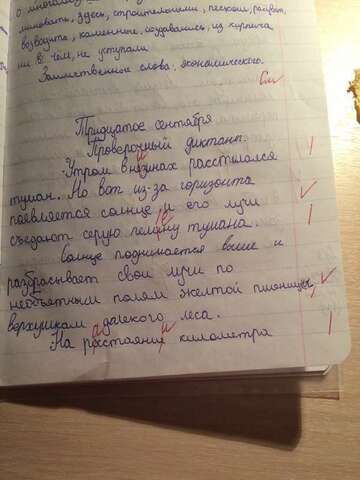 о многолюдн
мановать, здесь, строительными, песком, разват,
возводить, каменные, создавались, из кирпича
ни в чём, не уступали
Заимственные слова: экономического.
См
Тридцатое сентября
Проверочный диктант.
Утром в низинах расстилался
туман. Но вот из-за горизонта
появляется солнце и его лучи
съедают серую пелену тумана.
Солнце поднимается выше и
разбрасывает свои лучи по
необъятным полям желтой пшеницы,
верхушкам далекого леса.
На расстоянии километра